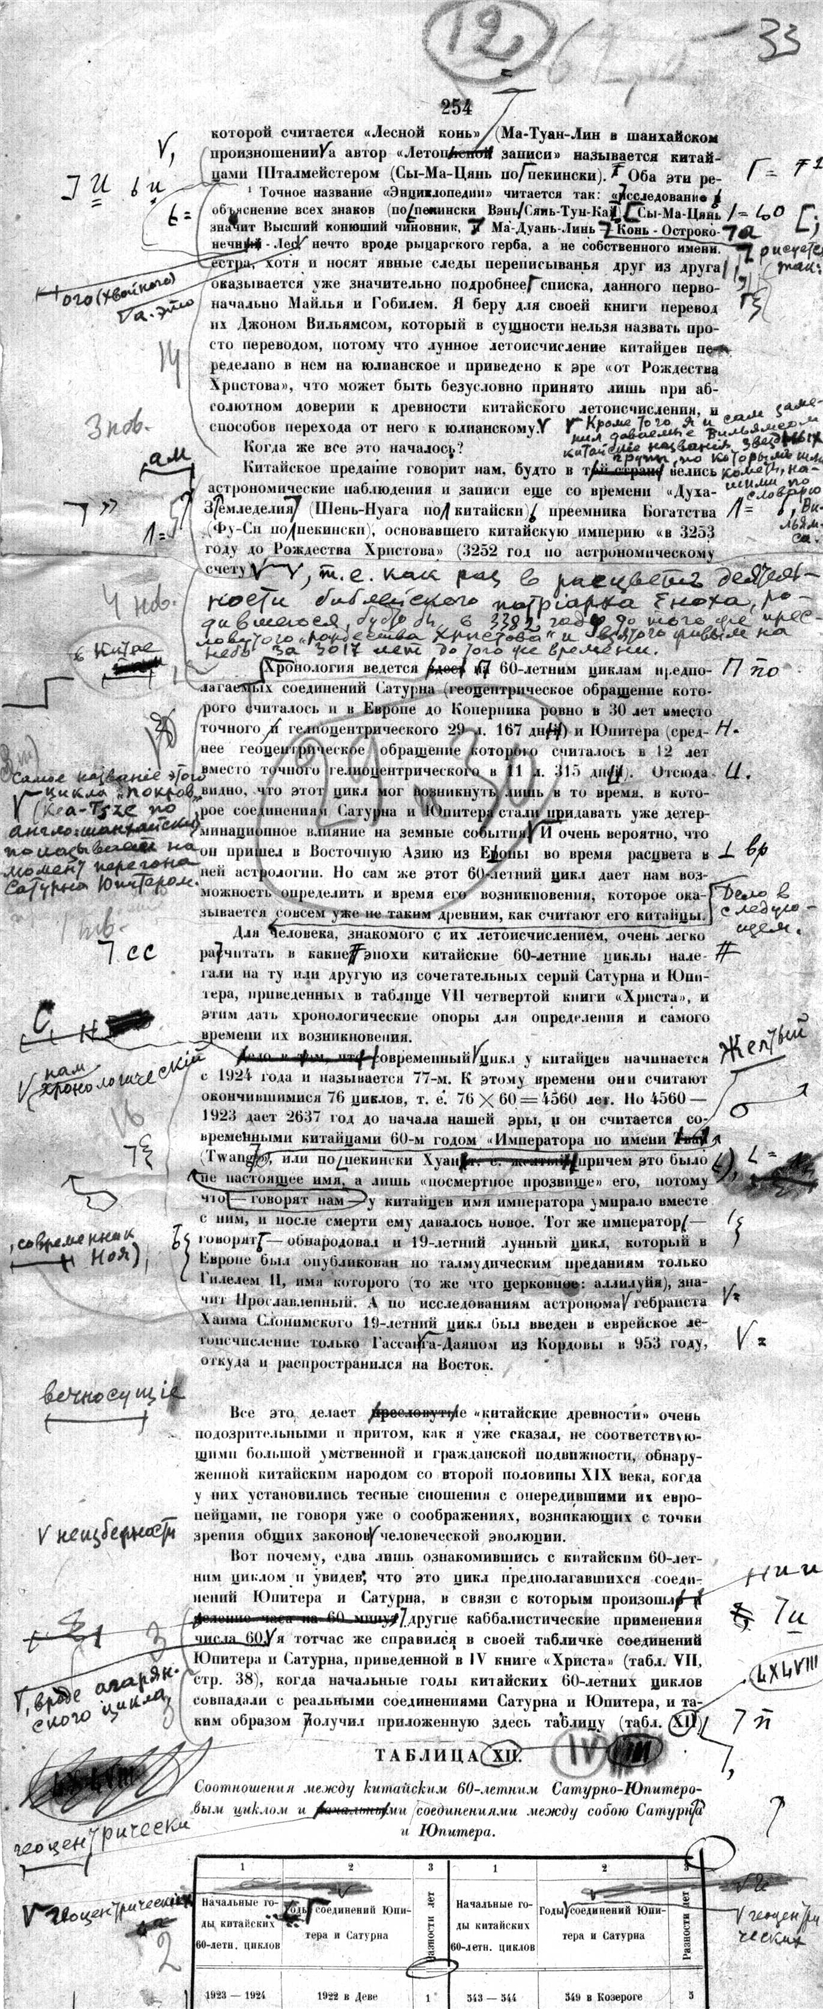 12
33
254
которой считается «Лесной конь» (Ма-Туан-Лин в шанхайском
произношении а автор «Летописной записи» называется китай-
цами Шталмейстером (Сы-Ма-Цянь по пекински). Оба эти ре-
¹ Точное название «Энциклопедии» читается так: «исследование
объяснение всех знаков (по пекински Вэнь Сянь-Тун-Кай). Сы-Ма-Цянь
значит Высший конюший чиновник, Ма-Дуань-Линь Конь - Остроко-
нечный - Лес нечто вроде рыцарского герба, а не собственного имени.
ого (хвойного)
а. это
естра, хотя и носят явные следы переписыванья друг из друга
оказывается уже значительно подробнее списка, данного перво-
начально Майлья и Гобилем. Я беру для своей книги перевод
их Джоном Вильямсом, который в сущности нельзя назвать про-
сто переводом, потому что лунное летоисчисление китайцев пе-
ределано в нем на юлианское и приведено к эре «от Рождества
Христова», что может быть безусловно принято лишь при аб-
солютном доверии к древности китайского летоисчисления, и
способов перехода от него к юлианскому.
Кроме того я и сам заме-
нил даваемые Вильямсом
китайские названия звездных
групп, по которым шли
кометы, на-
шими по
словарю
Ви-
льям-
са.
3 нов.
Когда же все это началось?
ам
Китайское предание говорит нам, будто в той стране велись
астрономические наблюдения и записи еще со времени «Духа-
Земледелия» (Шень-Нуага по китайски), преемника Богатства
(Фу-Си по пекински), основавшего китайскую империю «в 3253
году до Рождества Христова» (3252 год по астрономическому
счету
, т. е. как раз в расцвете деятель-
ности библейского патріарха Еноха, ро-
дившегося, будто бы, в 3382 году до того же прес-
ловутого „Рождества Христова“ и взятого живым на
небо за 3017 лет до того же времени.
4 нов.
в Китае
Хронология ведется здесь по 60-летним циклам предпо-
лагаемых соединений Сатурна (геоцентрическое обращение кото-
рого считалось и в Европе до Коперника ровно в 30 лет вместо
точного и гелиоцентрического 29 л. 167 дней) и Юпитера (сред-
нее геоцентрическое обращение которого считалось в 12 лет
вместо точного гелиоцентрического в 11 л. 315 дней). Отсюда
видно, что этот цикл мог возникнуть лишь в то время, в кото-
рое соединениям Сатурна и Юпитера стали придавать уже детер-
минационное влияние на земные события. И очень вероятно, что
он пришел в Восточную Азию из Европы во время расцвета в
ней астрологии. Но сам же этот 60-летний цикл дает нам воз-
можность определить и время его возникновения, которое ока-
зывается совсем уже не таким древним, как считают его китайцы.
29 30
Самое название этого
цикла „Покров“
(Kea-Tsze по
англо-шанхайски)
показывает на
момент перегона
Сатурна Юпитером.
Дело в
следую-
щем.
Для человека, знакомого с их летоисчислением, очень легко
расчитать в какие эпохи китайские 60-летние циклы нале-
гали на ту или другую из сочетательных серий Сатурна и Юпи-
тера, приведенных в таблице VII четвертой книги «Христа», и
этим дать хронологические опоры для определения и самого
времени их возникновения.
нам
хронологическій
Желтый
Дело в том, что современный цикл у китайцев начинается
с 1924 года и называется 77-м. К этому времени они считают
окончившимися 76 циклов, т. е. 76 × 60 = 4560 лет. Но 4560 —
1923 дает 2637 год до начала нашей эры, и он считается со-
временными китайцами 60-м годом «Императора по имени
(Twang), или по пекински Хуан т. е. желтый причем это было
не настоящее имя, а лишь «посмертное прозвище» его, потому
что — говорят нам — у китайцев имя императора умирало вместе
с ним, и после смерти ему давалось новое. Тот же император —
говорят — обнародовал и 19-летний лунный цикл, который в
Европе был опубликован по талмудическим преданиям только
Гилелем II, имя которого (то же что церковное: аллилуйя), зна-
чит Прославленный. А по исследованиям астронома гебраиста
Хаима Слонимского 19-летний цикл был введен в еврейское ле-
тоисчисление только Гассана-Даяном из Кордовы в 953 году,
откуда и распространился на Восток.
, современник
Ноя),
вечносущіе
Все это делает пресловутые «китайские древности» очень
подозрительными и притом, как я уже сказал, не соответствую-
щими большой умственной и гражданской подвижности, обнару-
женной китайским народом со второй половины XIX века, когда
у них установились тесные сношения с опередившими их евро-
пейцами, не говоря уже о соображениях, возникающих с точки
зрения общих законов человеческой эволюции.
неизбежности
Вот почему, едва лишь ознакомившись с китайским 60-лет-
ним циклом и увидев, что это цикл предполагавшихся соеди-
нений Юпитера и Сатурна, в связи с которым произошли и
деление часа на 60 минут другие каббалистические применения
числа 60, я тотчас же справился в своей табличке соединений
Юпитера и Сатурна, приведенной в IV книге «Христа» (табл. VII,
стр. 38), когда начальные годы китайских 60-летних циклов
совпадали с реальными соединениями Сатурна и Юпитера, и та-
ким образом получил приложенную здесь таблицу (табл. XII)
, вроде агарян-
ского цикла,
LXLVIII
ТАБЛИЦА XII.
IV
Соотношения между китайским 60-летним Сатурно-Юпитеро-
вым циклом и начальными соединениями между собою Сатурна
и Юпитера.
геоцентрически
геоцентрических
геоцентри
ческих
1 2 3 1 2 3
Начальные го-
ды китайских
60-летн. циклов
Годы соединений Юпи-
тера и Сатурна
Разности лет
Начальные го-
ды китайских
60-летн. циклов
Годы соединений Юпи-
тера и Сатурна
Разности лет
1923 — 1924 1922 в Деве 1 543 — 544 549 в Козероге 5